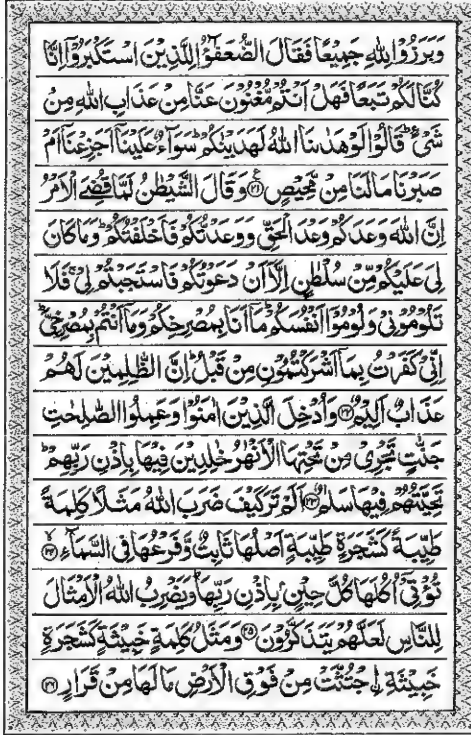 وَبَرَزُوْا لِلّٰهِ جَمِيْعًا فَقَالَ الضُّعَفٰٓؤُا لِلَّذِيْنَ اسْتَكْبَرُوْٓا اِنَّا
كُنَّا لَكُمْ تَبَعًا فَهَلْ اَنْتُمْ مُّغْنُوْنَ عَنَّا مِنْ عَذَابِ اللّٰهِ مِنْ
شَيْءٍ ؕ قَالُوْا لَوْ هَدٰىنَا اللّٰهُ لَهَدَيْنٰكُمْ ؕ سَوَآءٌ عَلَيْنَاۤ اَجَزِعْنَاۤ اَمْ
صَبَرْنَا مَا لَنَا مِنْ مَّحِيْصٍ ۝۲۱ وَقَالَ الشَّيْطٰنُ لَمَّا قُضِيَ الْاَمْرُ
اِنَّ اللّٰهَ وَعَدَكُمْ وَعْدَ الْحَقِّ وَوَعَدْتُّكُمْ فَاَخْلَفْتُكُمْ ؕ وَمَا كَانَ
لِيَ عَلَيْكُمْ مِّنْ سُلْطٰنٍ اِلَّاۤ اَنْ دَعَوْتُكُمْ فَاسْتَجَبْتُمْ لِيْ ۚ فَلَا
تَلُوْمُوْنِيْ وَلُوْمُوْۤا اَنْفُسَكُمْ ؕ مَاۤ اَنَا بِمُصْرِخِكُمْ وَمَاۤ اَنْتُمْ بِمُصْرِخِيَّ ؕ
اِنِّيْ كَفَرْتُ بِمَاۤ اَشْرَكْتُمُوْنِ مِنْ قَبْلُ ؕ اِنَّ الظّٰلِمِيْنَ لَهُمْ
عَذَابٌ اَلِيْمٌ ۝۲۲ وَاُدْخِلَ الَّذِيْنَ اٰمَنُوْا وَعَمِلُوا الصّٰلِحٰتِ
جَنّٰتٍ تَجْرِيْ مِنْ تَحْتِهَا الْاَنْهٰرُ خٰلِدِيْنَ فِيْهَا بِاِذْنِ رَبِّهِمْ ؕ
تَحِيَّتُهُمْ فِيْهَا سَلٰمٌ ۝۲۳ اَلَمْ تَرَ كَيْفَ ضَرَبَ اللّٰهُ مَثَلًا كَلِمَةً
طَيِّبَةً كَشَجَرَةٍ طَيِّبَةٍ اَصْلُهَا ثَابِتٌ وَّفَرْعُهَا فِي السَّمَآءِ ۝۲۴
تُؤْتِيْۤ اُكُلَهَا كُلَّ حِيْنٍۭ بِاِذْنِ رَبِّهَا ؕ وَيَضْرِبُ اللّٰهُ الْاَمْثَالَ
لِلنَّاسِ لَعَلَّهُمْ يَتَذَكَّرُوْنَ ۝۲۵ وَمَثَلُ كَلِمَةٍ خَبِيْثَةٍ كَشَجَرَةٍ
خَبِيْثَةِ ِۨاجْتُثَّتْ مِنْ فَوْقِ الْاَرْضِ مَا لَهَا مِنْ قَرَارٍ ۝۲۶